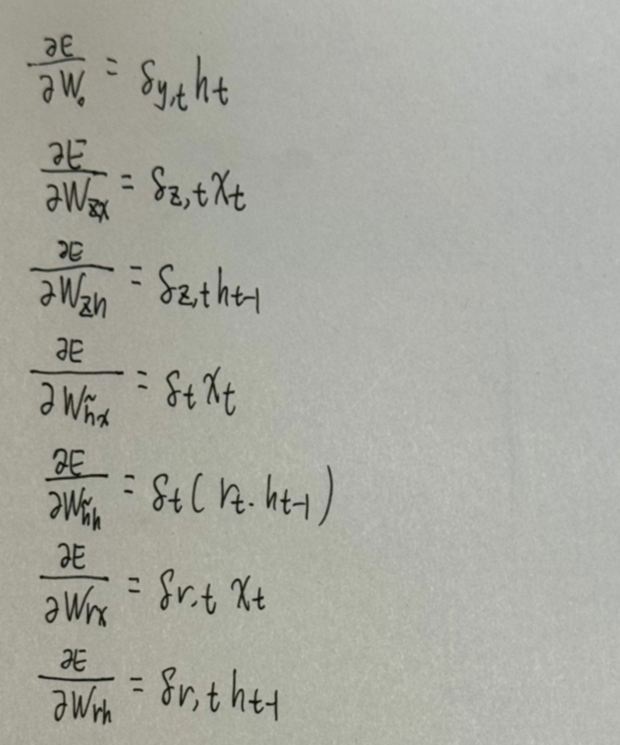 ∂E/∂W₀ = δ_{y,t} h_t
∂E/∂W_{zx} = δ_{z,t} x_t
∂E/∂W_{zh} = δ_{z,t} h_{t-1}
∂E/∂W_{h̃x} = δ_t x_t
∂E/∂W_{h̃h} = δ_t ( r_t · h_{t-1} )
∂E/∂W_{rx} = δ_{r,t} x_t
∂E/∂W_{rh} = δ_{r,t} h_{t-1}